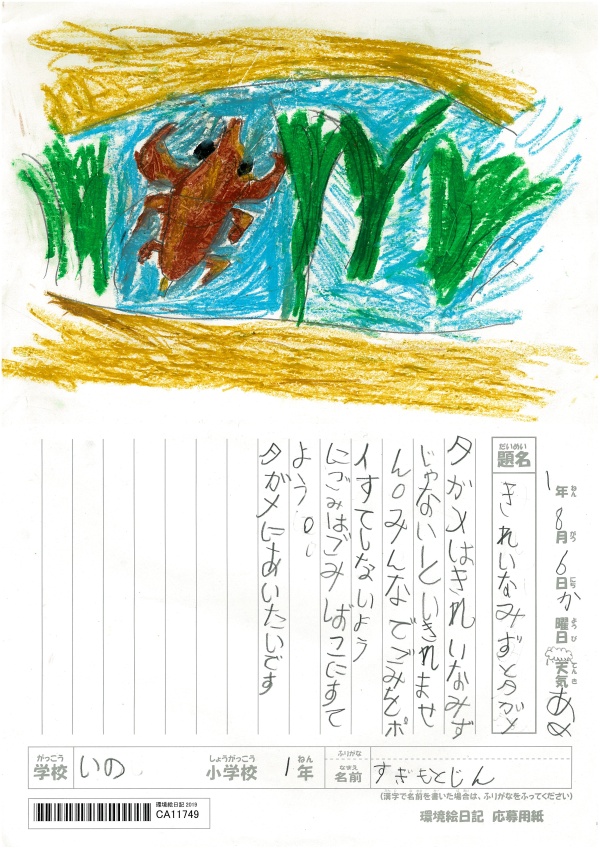 1年8月6日か曜日天気あめ
ねん がつ にち ようび てんき
だいめい
題名 きれいなみずとタガメ
タガメはきれいなみず
じゃないといきれませ
ん。みんなでごみをポ
イすてしないよう
にごみはごみばこにすて
よう。
タガメにあいたいです
がっこう しょうがっこう ねん ふりがな
学校 いの 小学校 1年
なまえ
名前 すぎもとじん
(漢字で名前を書いた場合は、ふりがなをふってください)
環境絵日記 2019
CA11749
環境絵日記 応募用紙